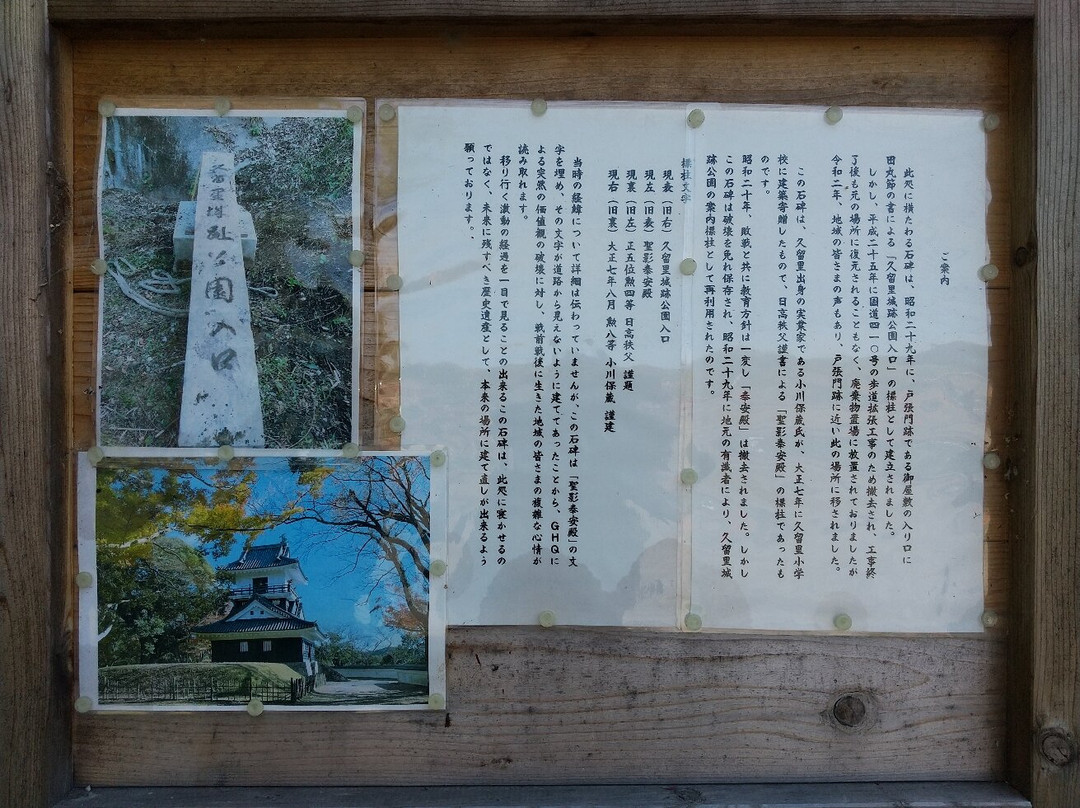 ご案内
此処に横たわる石碑は、昭和二十九年に、戸張門跡である御屋敷の入り口に
田丸節の書による「久留里城跡公園入口」の標柱として建立されました。
しかし、平成二十五年に国道四一〇号の歩道拡張工事のため撤去され、工事終
了後も元の場所に復元されることもなく、廃棄物置場に放置されておりましたが
令和二年、地域の皆さまの声もあり、戸張門跡に近い此の場所に移されました。
この石碑は、久留里出身の実業家である小川保蔵氏が、大正七年に久留里小学
校に建築寄贈したもので、日高秩父謹書による「聖影奉安殿」の標柱であったも
のです。
昭和二十年、敗戦と共に教育方針は一変し「奉安殿」は撤去されました。しかし
この石碑は破壊を免れ保存され、昭和二十九年に地元の有識者により、久留里城
跡公園の案内標柱として再利用されたのです。
標柱文字
現表（旧右）久留里城跡公園入口
現左（旧表）聖影奉安殿
現裏（旧左）正五位勲四等 日高秩父 謹題
現右（旧裏）大正七年八月 勲八等 小川保蔵 謹建
当時の経緯について詳細は伝わっていませんが、この石碑は「聖影奉安殿」の文
字を埋め、その文字が道路から見えないように建ててあったことから、GHQに
よる突然の価値観の破壊に対し、戦前戦後に生きた地域の皆さまの複雑な心情が
読み取れます。
移り行く激動の経過を一目で見ることの出来るこの石碑は、此処に寝かせるの
ではなく、未来に残すべき歴史遺産として、本来の場所に建て直しが出来るよう
願っております。
里城址公園入口